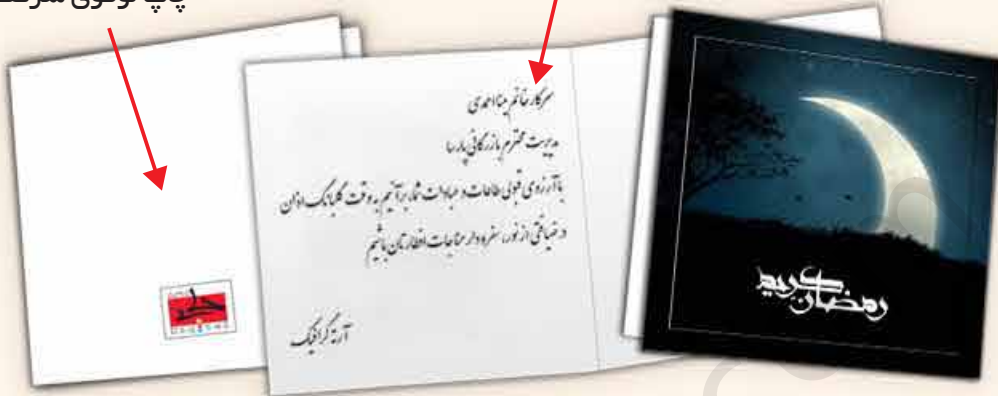 چاپ لوگوی شرکت
سرکار خانم مینا احمدی
مدیریت محترم بازرگانی پارسا
با آرزوی قبولی طاعات و عبادات شما، برآنیم به وقت گلبانگ اذان
در ضیافتی از نور، سفره‌دار مناجات افطارتان باشیم
گرافیک
رمضان کریم